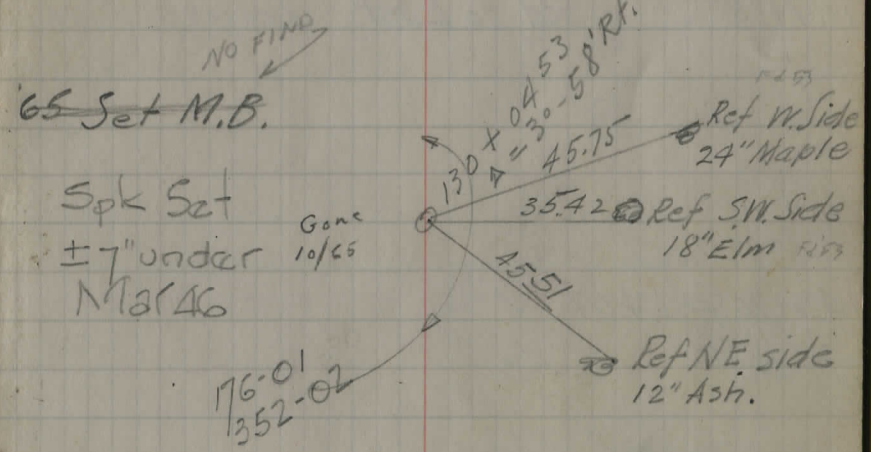 NO FIND
'65 Set M.B.
Spk Set
± 7" under
Mar 46
Gone
10/65
130 X 04.53
Δ = 3°-58' Rt.
45.75
Ref W. Side
24" Maple
35.42
Ref S.W. Side
18" Elm
45.51
Ref NE. side
12" Ash.
176-01
352-02